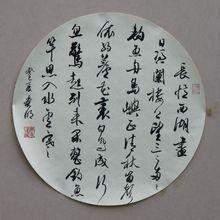 長憶西湖盡
日憑闌樓上望三三兩兩
釣魚舟島嶼正清秋笛聲
依約蘆花裏白鳥成行
忽驚起別來閒整釣魚
竿思入水雲寒